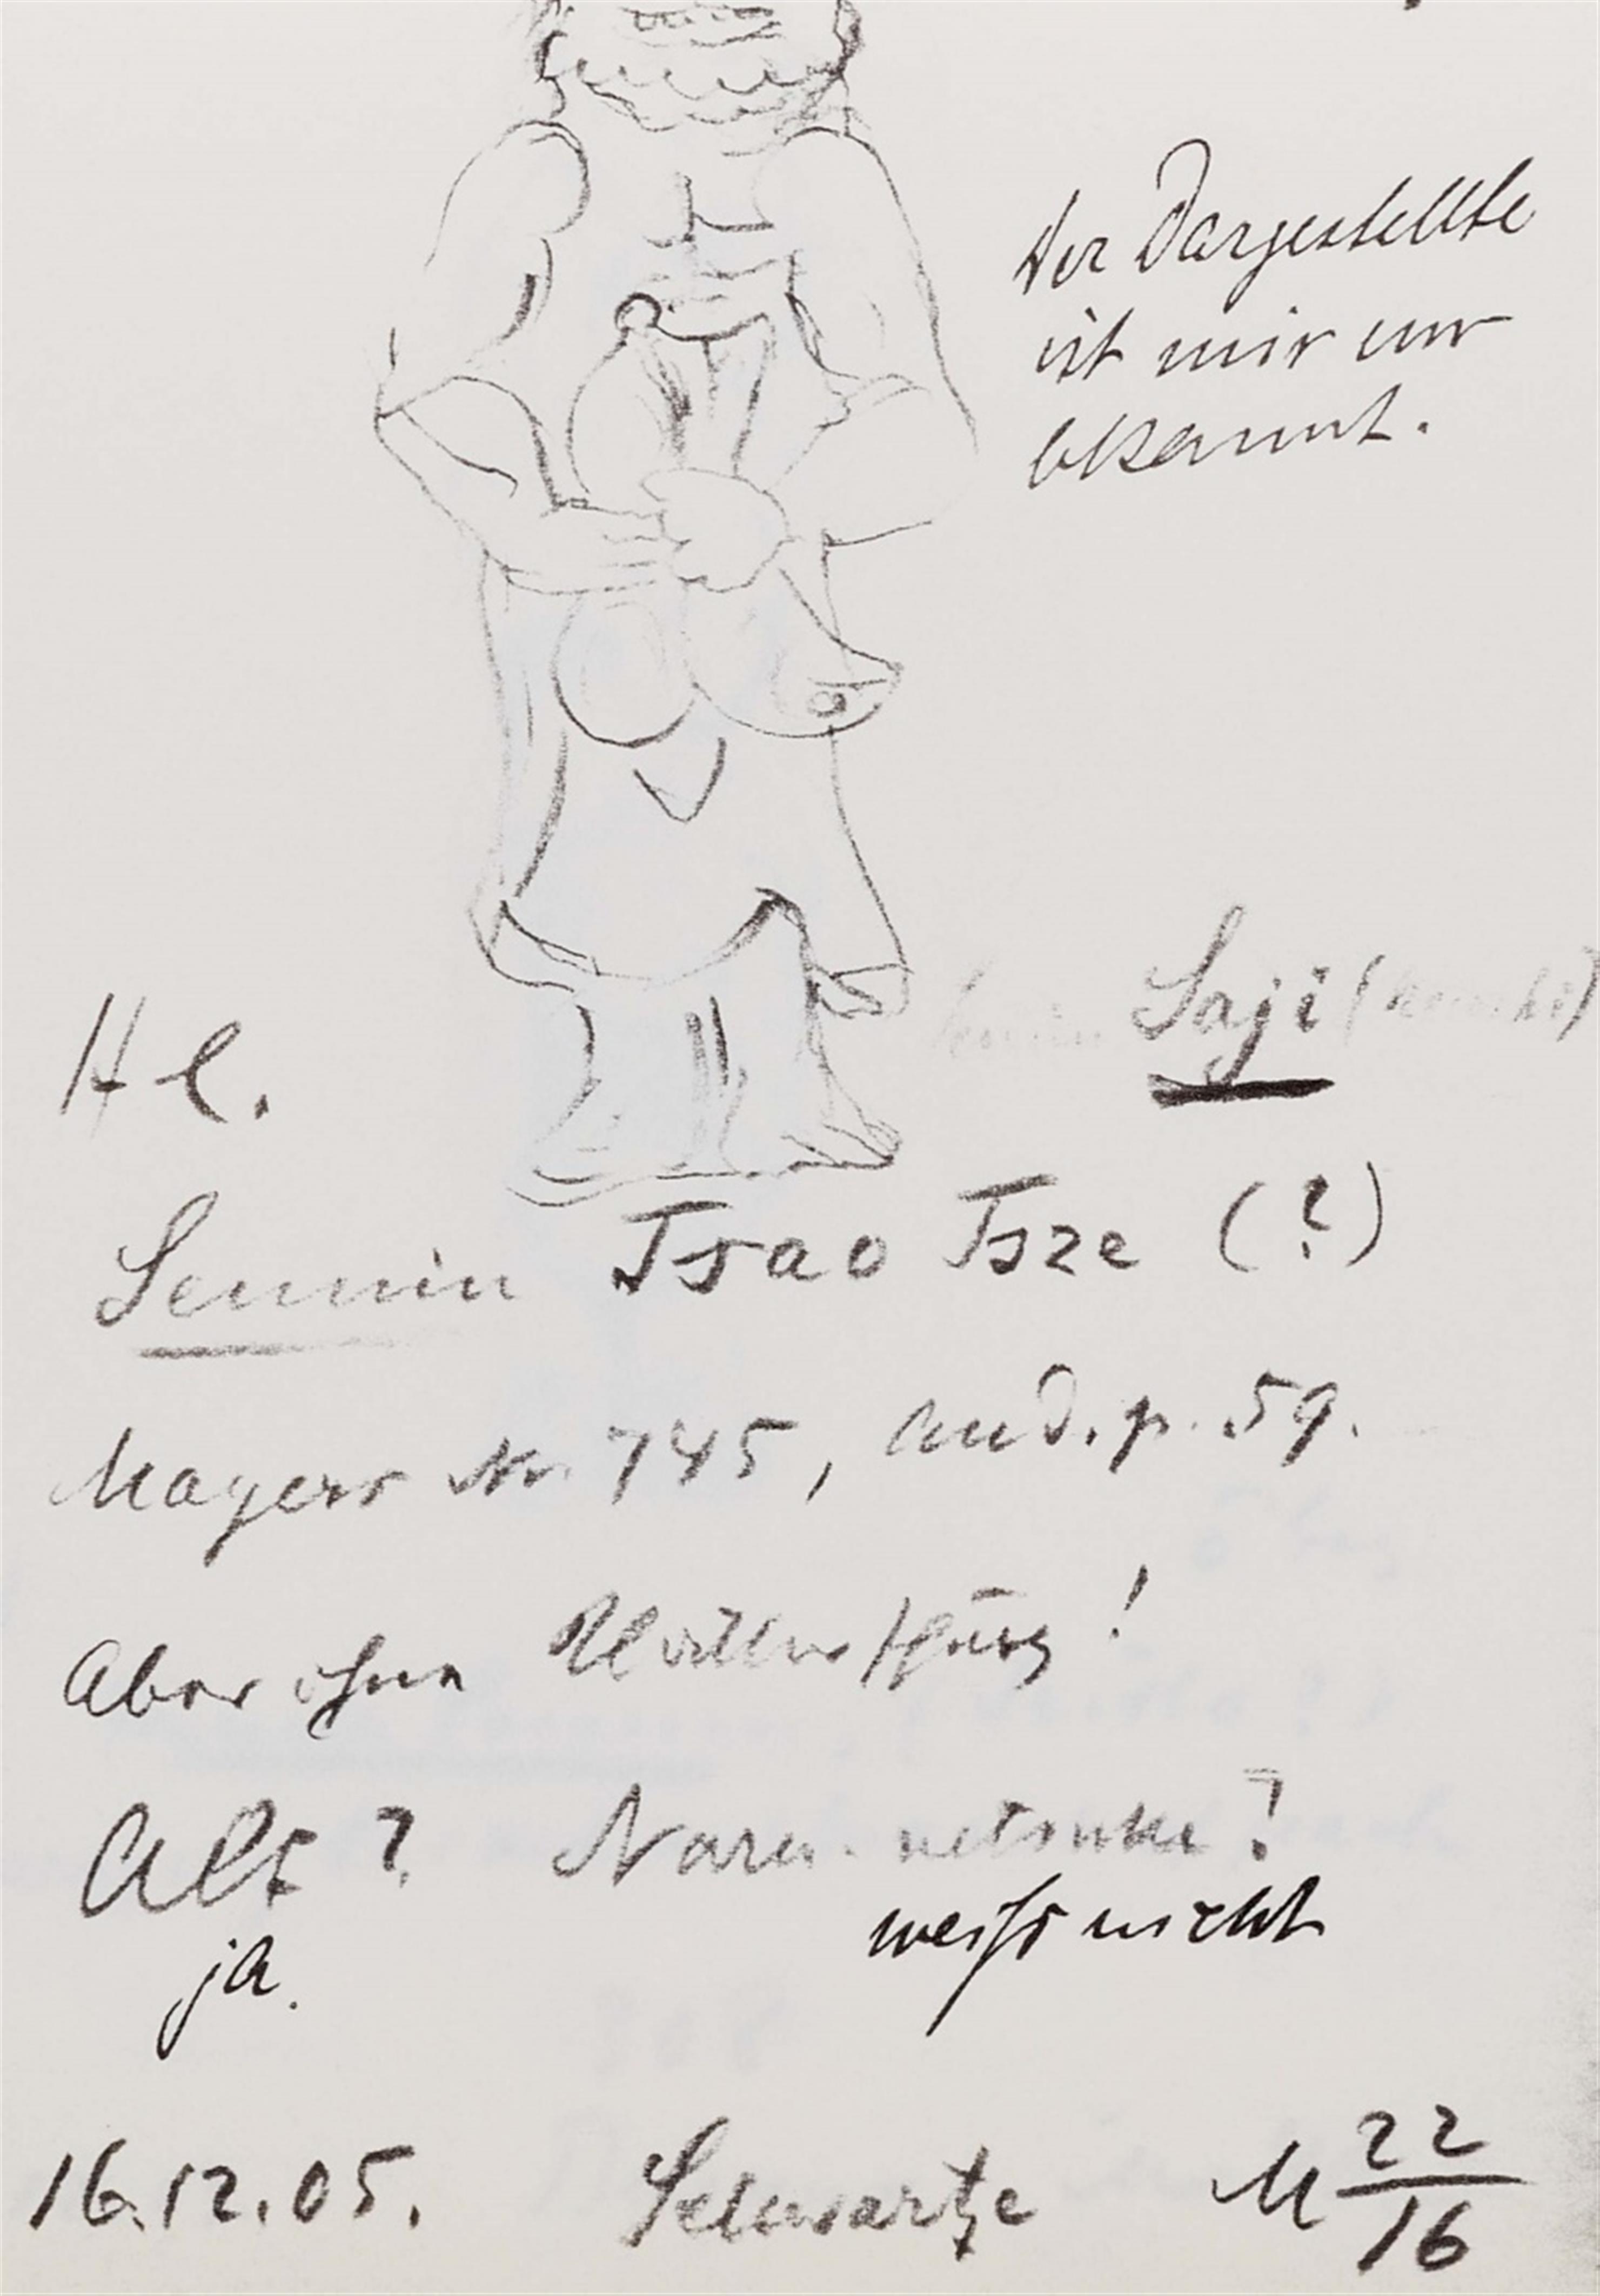 Der Dargestellte
ist mir un
bekannt.
Saji
Hl.
Sennin Tsao Tsze (?)
Mayers No. 745, And. p. 59.
Aber ohne !
Alt? netsuke?
ja. weiß nicht
16.12.05. Schwartze M 22/16